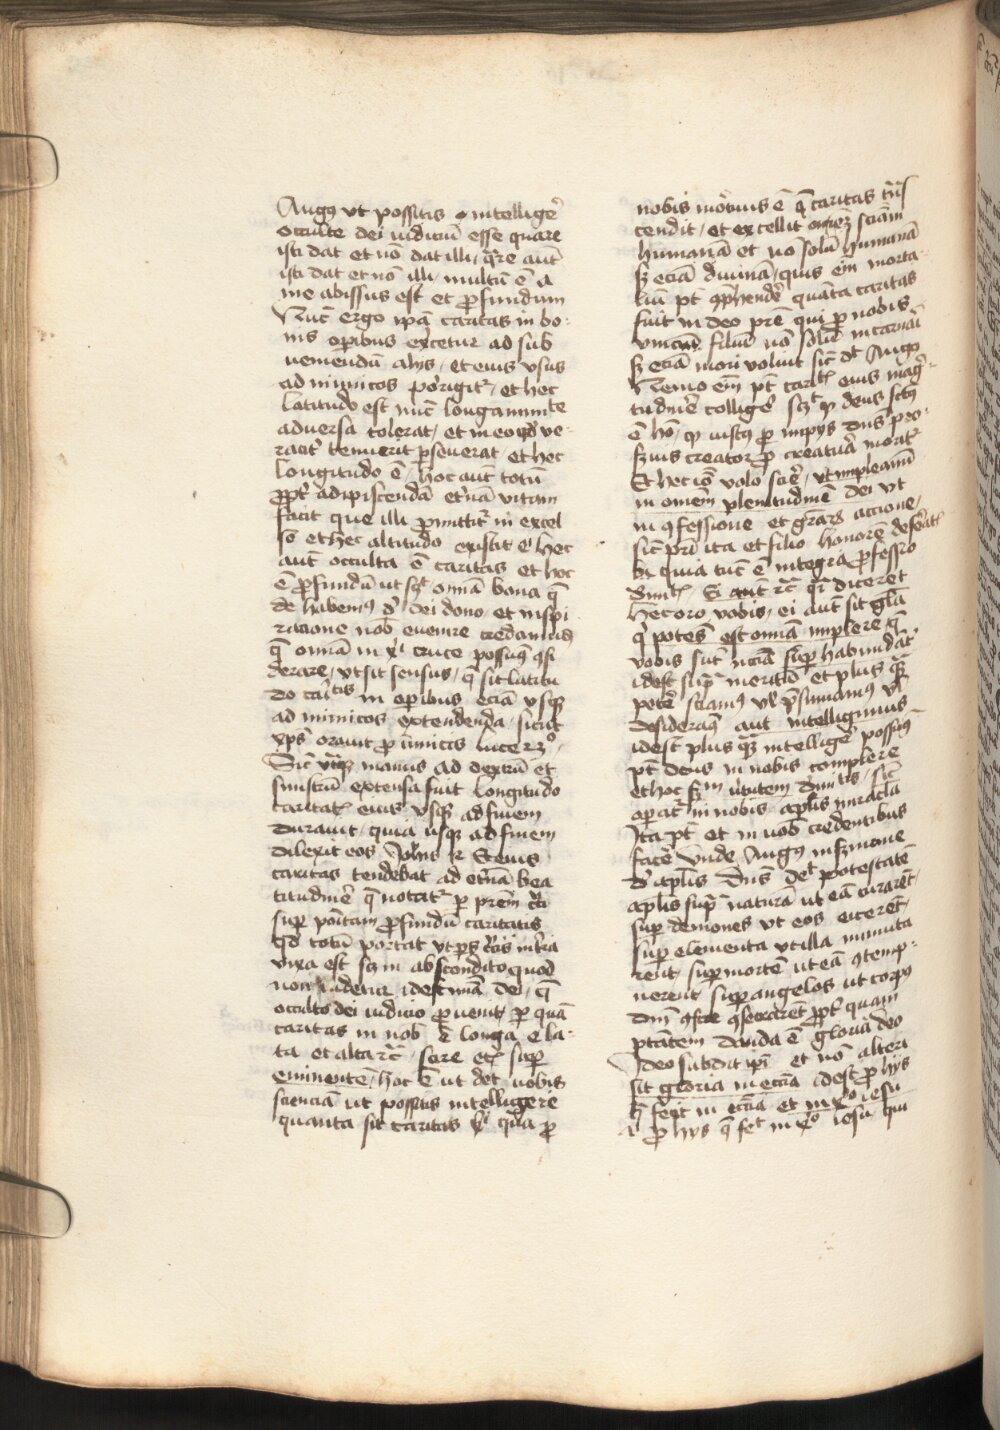 Augꝰ vt possitis intelligē
occulte dei iudiciū esse quare
isti dat et nō dat illi, q̄re aut
isti dat et nō illi, multū ē a
me abissus est et ꝓfundum
Nūc ergo ipā caritas in bo-
nis oꝑibus exc̄etur ad sub
ueniendū alijs, et eius vsus
ad inimicos porrigitᷣ, et hec
latitudo est nūc longanimite
adversa tolerat, et in eo qd̄ ve-
raciť tenuerit ꝑseuerat, et hec
longitudo ē, hoc aūt totū
ꝓpť adipiscendā et̄nā vitam
facit que illi ꝓmittitᷣ in excel
so et hec altitudo existit ē hec
aūt occulta ē caritas et hoc
ē ꝓfundū ut sꝫ omā bona q̄
de habemꝰ d̄ dei dono et inspi
racione nob̄ euenire credamus
q̄ omā in xi cruce possumꝰ ꝯsi
derare, ut sit sensus, q̄ sit latitu
do caritis in oꝑibus eciā vsqꝫ
ad inimicos extendenda, sicut
xp̄s orauit ꝓ inimicis luce 23o,
Sic vtriqꝫ manus ad dextrū et
sinistrū extensa fuit longitudo
caritatꝭ eius vsqꝫ ad finem
durauit, quia usqꝫ ad finem
dilexit eos Joh̄is
caritas tendebat ad et̄nā bea
titudinē q̄ notatᷣ ꝑ prēm
suꝑ poitam ꝓfundū caritatis
qd̄ totū portat ut
uixa est sꝫ in abscondito quod
non uidetur idest dei, q̄
occulto dei iudicio ꝓuenit, ꝑ quā
caritas in nob̄ ē longa e la-
ta et alta rc̄, scire et̄ suꝑ
eminentē, hoc ē ut det uobis
scienciā ut possitis intelligere
quanta sit caritas xi qua ꝓ
nobis mortuus ē q̄ caritas
cendit, et excellit omēꝫ sciām
humanā et no solū humanā
sꝫ eciā diuinā, quis em̄ morta-
liū pt ꝯp̄hendē quāta caritas
fuit in deo prē qui ꝓ nobis
unicū filiū nō solū incarnāi
sꝫ eciā mori voluit sic dt Augꝰ
Nemo em̄ pt carītꝭ eius mag-
tudinē colligē sꝫ ꝙ deus sctꝰ
ē hō, ꝙ iustꝰ ꝓ impijs dn̄s ꝓ
seruis creator ꝓ creatura moratᷣ
Et hec iō volo scire, ut impleamī
in omēm plenitudinē dei ut
in ꝯfessione et grārꝫ accione,
sic prī ita et filio honorē deferatꝭ
quia tūc ē integra ꝓfessio
Si aut rc̄ qr̄ diceret
Hec oro uobis, ei aut sit glā
q̄ potes est omā implere q̄
vobis sūt necciā suꝑ habūdāt,
idest supra meritū et plus q̄ꝫ
petē sciamꝰ vl̄ p̄sumamꝰ vl̄
desideramꝰ aut intelligimus
idest plus q̄ꝫ intelligē possumꝰ
pt deus in nobis complere
et hoc sꝫm v̄tutem diuītis, sic
operatᷣ in nobis apl̄is miracla
Ita pt et in uob̄ credentibus
facē Vnde Augꝰ in sermone
d̄ apl̄is Dn̄s det potestatē
apl̄is supra naturā ut eā curarēt,
suꝑ demones ut eos eicerēt,
suꝑ elementa ut illa immuta
rent, suꝑ mortē ut eā ꝯtemp-
nerent, suꝑ angelos ut corpꝰ
dn̄i ꝯsecrarēt ꝓpť quam
ptātem danda ē gloria deo
Ideo subdit ipī et nō alteri
sit gloria in eccīa idest ꝓ hijs
q̄ fecit in eccīa et in xo iesu
a ꝓ hijs q̄ fet in xo iesu qui